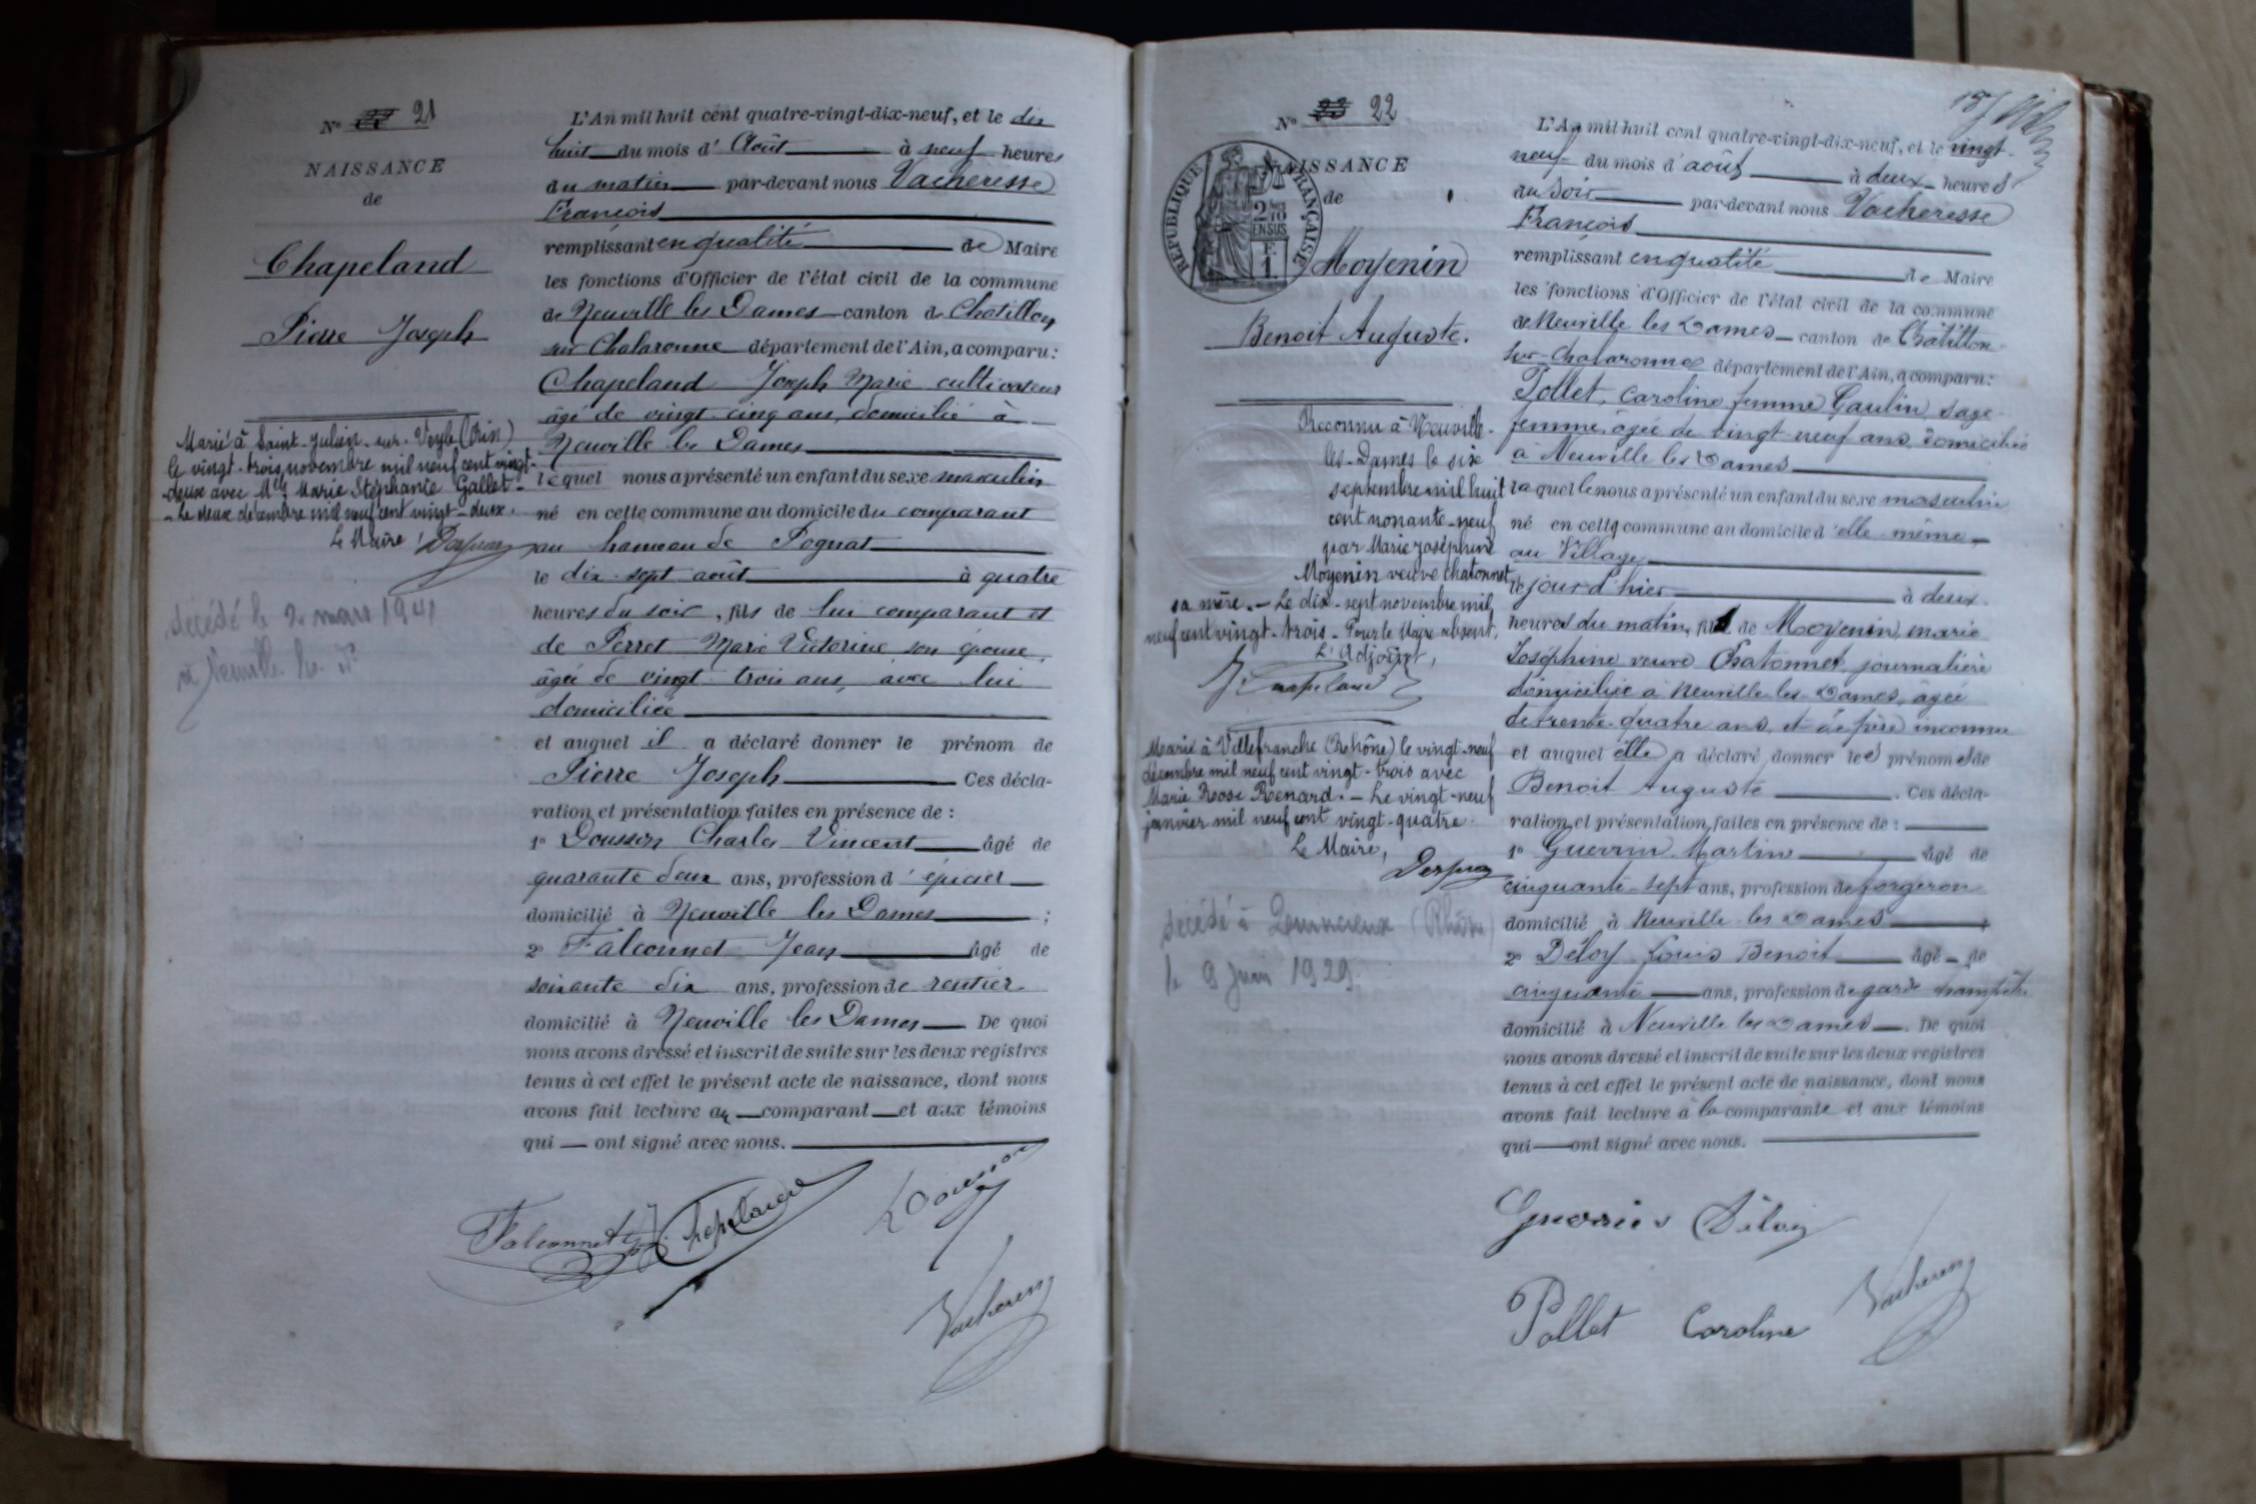 N° 21
NAISSANCE
de
Chapeland
Pierre Joseph
Marié à Saint-Julien-sur-Veyle (Ain)
le vingt-trois novembre mil neuf cent vingt-
deux avec Mlle Marie Stéphanie Gallet.
- Le deux décembre mil neuf cent vingt-deux.
Le Maire,
décédé le 2 mars 1941
à Neuville les D
L'An mil huit cent quatre-vingt-dix-neuf, et le dix
huit du mois d' Août à neuf heures
du matin par-devant nous Vacheresse
François
remplissant en qualité de Maire
les fonctions d'Officier de l'état civil de la commune
de Neuville les Dames canton de Chatillon
sur Chalaronne département de l'Ain, a comparu :
Chapeland Joseph Marie cultivateur
âgé de vingt cinq ans, domicilié à
Neuville les Dames
lequel nous a présenté un enfant du sexe masculin
né en cette commune au domicile du comparant
au hameau de Pognat
le dix sept août à quatre
heures du soir, fils de lui comparant et
de Perret Marie Victorine son épouse,
âgée de vingt trois ans, avec lui
domiciliée
et auquel il a déclaré donner le prénom de
Pierre Joseph Ces décla-
ration et présentation faites en présence de :
1° Dousson Charles Vincent âgé de
quarante deux ans, profession d'épicier
domicilié à Neuville les Dames ;
2° Falconnet Jean âgé de
soixante dix ans, profession de rentier
domicilié à Neuville les Dames De quoi
nous avons dressé et inscrit de suite sur les deux registres
tenus à cet effet le présent acte de naissance, dont nous
avons fait lecture au comparant et aux témoins
qui ont signé avec nous.
Falconnet J. Chapeland Dousson
Vacheresse
N° 22
NAISSANCE
de
RÉPUBLIQUE FRANÇAISE
2 10 EN SUS
F. 1
Moyenin
Benoit Auguste.
Reconnu à Neuville-
les-Dames le six
septembre mil huit
cent nonante-neuf
par Marie Joséphine
Moyenin veuve Chatonnet,
sa mère. - Le dix-sept novembre mil
neuf cent vingt-trois - Pour le Maire absent,
L'Adjoint,
Marié à Villefranche (Rhône) le vingt-neuf
décembre mil neuf cent vingt-trois avec
Marie Rose Renard. - Le vingt-neuf
janvier mil neuf cent vingt-quatre.
Le Maire,
décédé à (Rhône)
le 9 juin 1929
157
L'An mil huit cent quatre-vingt-dix-neuf, et le vingt-
neuf du mois d'août à deux heures
du soir par-devant nous Vacheresse
François
remplissant en qualité de Maire
les fonctions d'Officier de l'état civil de la commune
de Neuville les Dames canton de Châtillon-
sur-Chalaronne département de l'Ain, a comparu :
Pollet, Caroline femme Gaulin sage-
femme, âgée de vingt-neuf ans, domiciliée
à Neuville les Dames
laquelle nous a présenté un enfant du sexe masculin
né en cette commune au domicile d'elle-même,
au Village
le jour d'hier à deux
heures du matin, fils de Moyenin, marie
Joséphine veuve Chatonnet, journalière
domiciliée à Neuville-les-Dames, âgée
de trente-quatre ans, et de père inconnu
et auquel elle a déclaré donner les prénoms de
Benoit Auguste . Ces décla-
ration et présentation faites en présence de :
1° Guerrin Martin âgé de
cinquante-sept ans, profession de forgeron
domicilié à Neuville-les-Dames ;
2° Deloy Louis Benoit âgé de
cinquante ans, profession de garde champêtre
domicilié à Neuville les Dames . De quoi
nous avons dressé et inscrit de suite sur les deux registres
tenus à cet effet le présent acte de naissance, dont nous
avons fait lecture à la comparante et aux témoins
qui ont signé avec nous.
Guerrin Déloy
Pollet Caroline Vacheresse